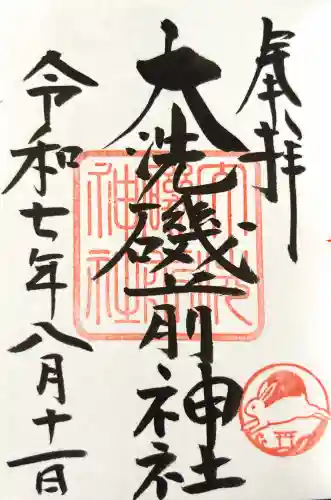 奉拝
大洗磯前神社
令和七年八月十一日